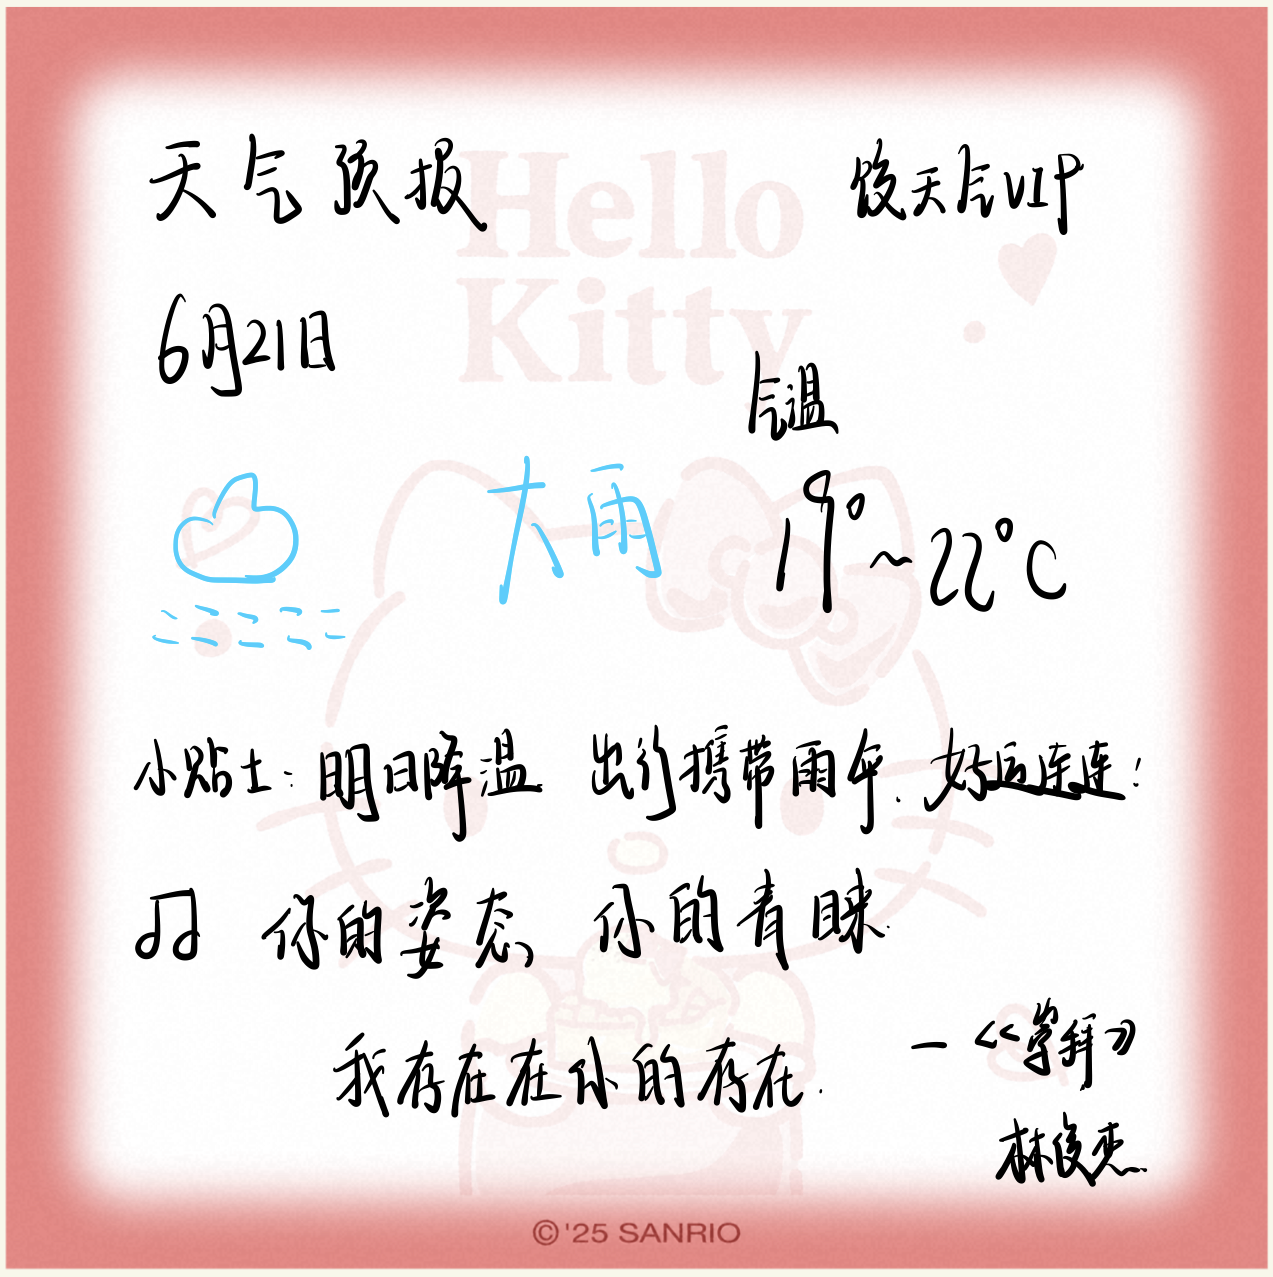 天气预报
Hello
Kitty
天气VIP
6月21日
气温
大雨
19°~22°C
小贴士:明日降温 出行携带雨伞.好运连连!
♫ 你的姿态、你的青睐.
我存在在你的存在.
—《崇拜》
林俊杰
©'25 SANRIO